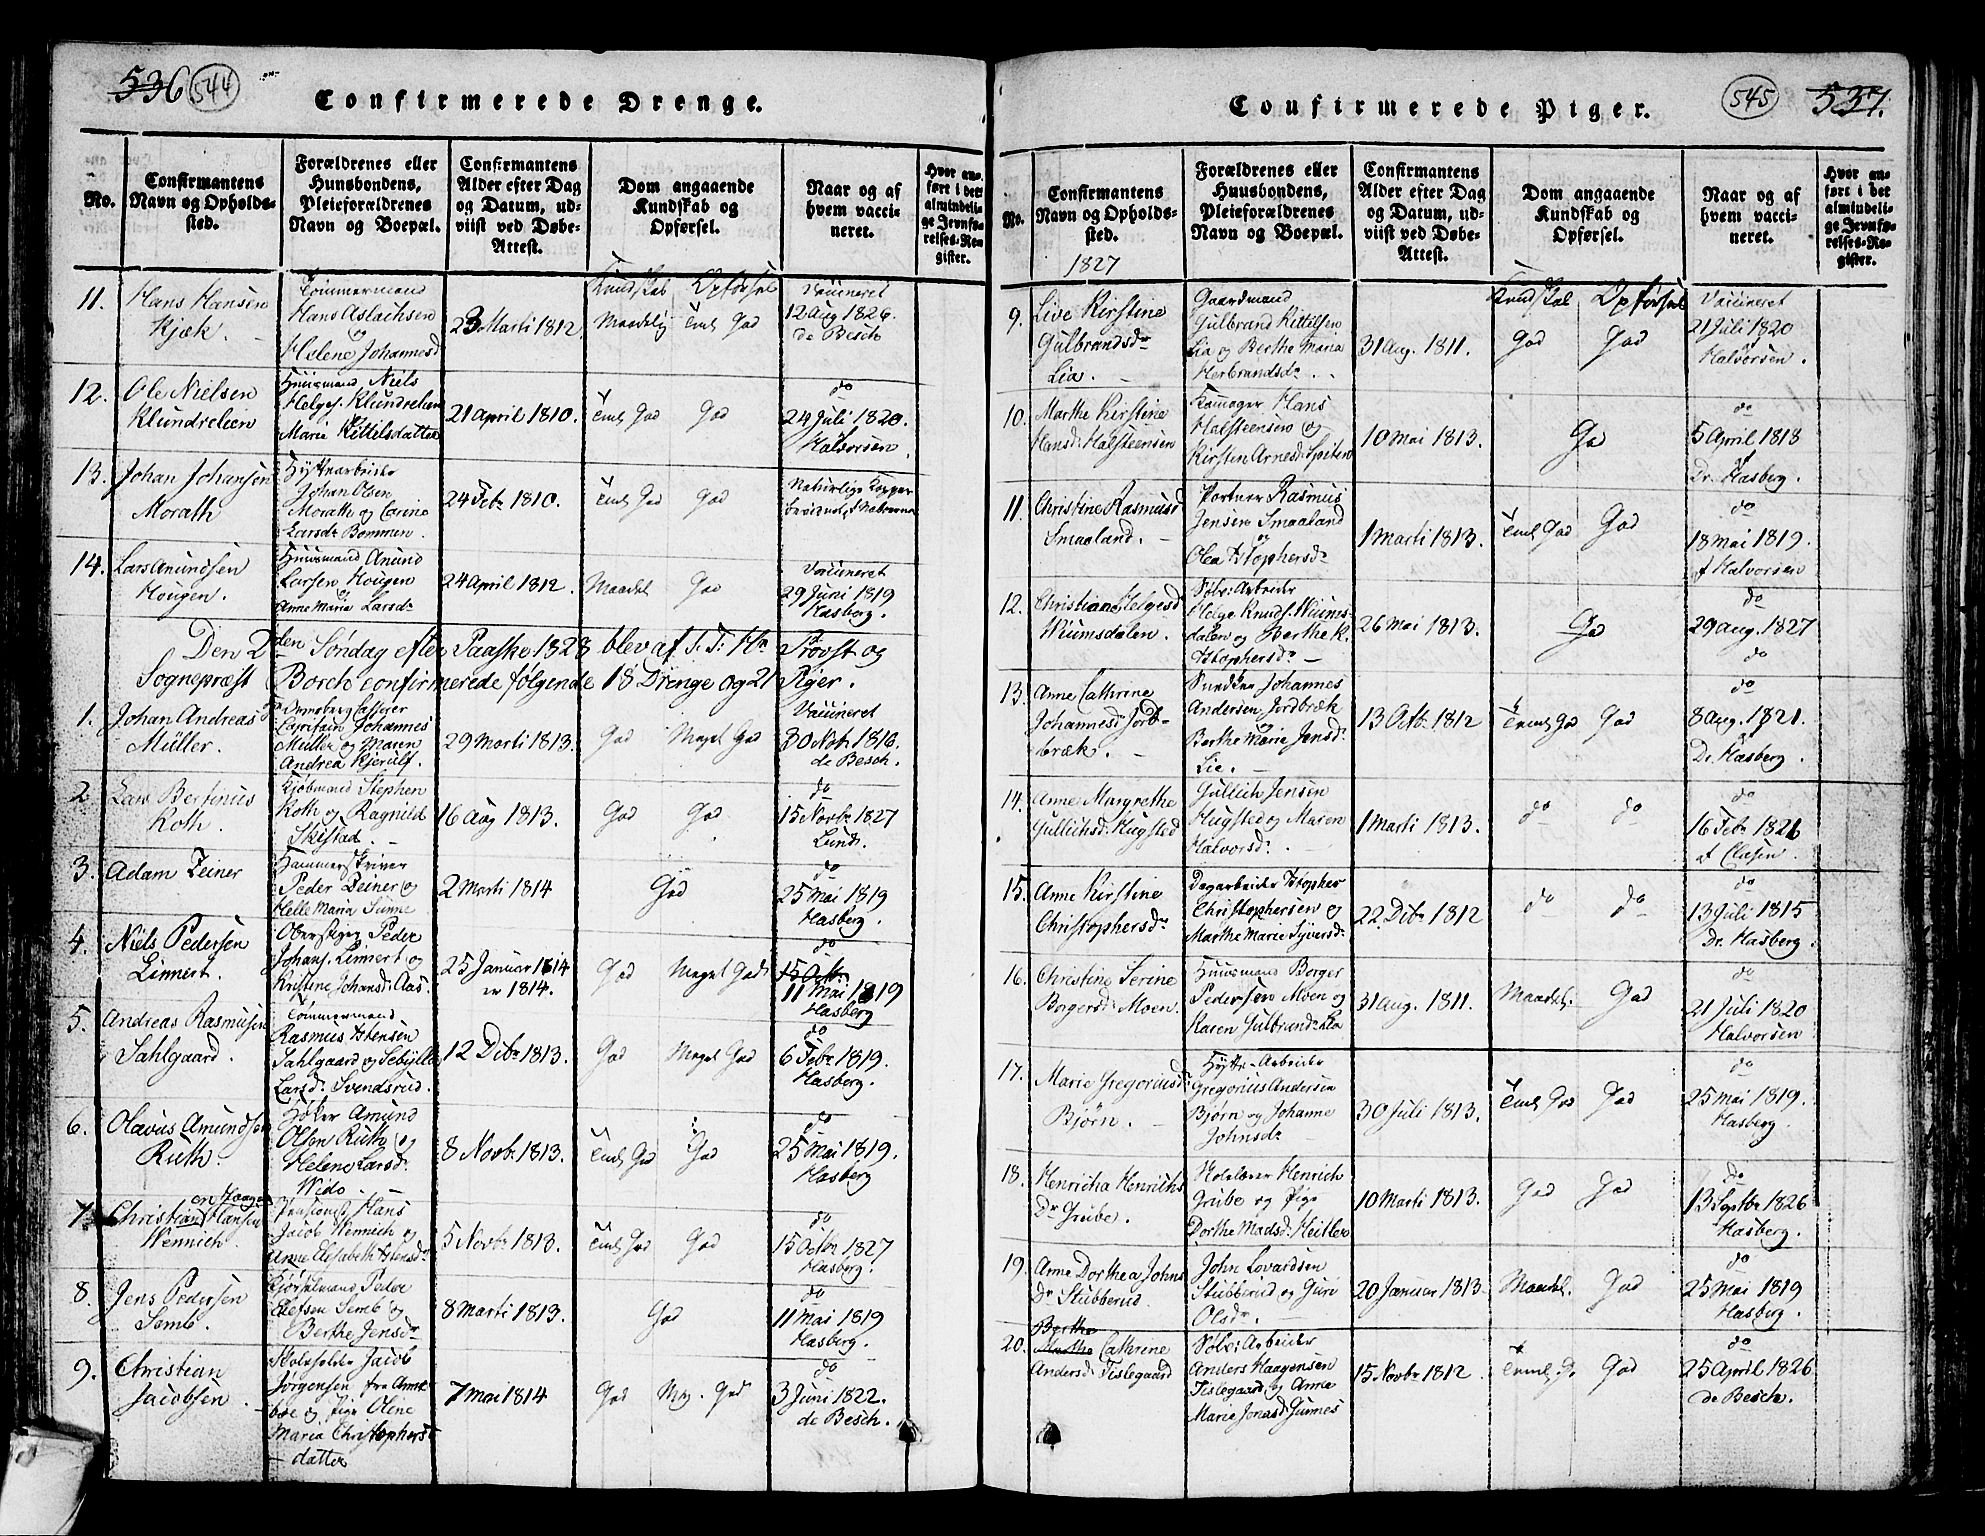 536 544
Confirmerede Drenge.
No.
Confirmantens
Navn og Opholds-
sted.
Forældrenes eller
Huusbondens,
Pleieforældrenes
Navn og Boepæl.
Confirmantens
Alder efter Dag
og Datum, ud-
viist ved Døbe-
Attest.
Dom angaaende
Kundskab og
Opførsel.
Naar og af
hvem vacci-
neret.
Hvor an-
ført i det
almindeli-
ge Jevnfø-
relses-Re-
gister.
Kundskab Opførsel
11.
Hans Hansen
Kjæk.
Tømmermand
Hans Aslachsen
og
Helene Johannesd
23 Marti 1812.
Maadelig Teml God
Vaccineret
12 Aug 1826.
de Besch
12.
Ole Nielsen
Klundrelien
Huusmand Niels
Helges. Klundrelien
Marie Kittelsdatter
21 April 1810.
Teml God God
do
24 Juli 1820.
Halvorsen.
13.
Johan Johansen
Morath
Hyttearbeider
Johan Olsen
Morath og Carine
Larsdr Bommen.
24 Febr 1810.
Teml God God
Naturlige Kopper
14.
Lars Amundsen
Hougen.
Huusmand Amund
Larsen Hougen
og
Anne Maria Larsdr
24 April 1812.
Maadel God
Vaccineret
29 Juni 1819
Hasberg.
Den 2den Søndag efter Paaske 1828 blev af S. T. Hr Provst og
Sognepræst Borch confirmerede følgende 18 Drenge og 21 Piger.
1.
Johan Andreas
Müller.
Capitain Johannes
Müller og Maren
Andrea Kjerulf.
29 Marti 1813.
God Meget God
Vaccineret
30 Novb 1816.
de Besch.
2
Lars Bertinus
Roth.
Kjøbmand Stephen
Roth og Ragnild
Skistad.
16 Aug 1813.
God God
do
15 Novbr 1827
Lund.
3.
Adam Zeiner
Hammerskriver
Peder Zeiner og
Helle Maria Sunne
2 Marti 1814
God
do
25 Mai 1819
Hasberg.
4.
Niels Pedersen
Linnert.
Oberstiger Peder
Johans. Linnert og
Kristine Johansd. Aas.
25 Januar 1814
er 1814.
God Meget God
do
15 Octbr
11 Mai 1819
Hasberg
5.
Andreas Rasmusen
Sahlgaard.
Tømmermand
Rasmus Istensen
Sahlgaard og Sebylle
Larsdr Svendsrud.
12 Decbr 1813.
God Meget God
do
6 Febr 1819.
Hasberg.
6.
Olavus Amundsen
Ruth.
Høker Amund
Olsen Ruth og
Helene Larsdr
Wido.
8 Novbr 1813.
Teml God God
do
25 Mai 1819.
Hasberg
7.
en Haagen
Christian Hansen
Wennich.
Pensionist Hans
Jacob Wennich og
Anne Elisabeth Istensdr
5 Novbr 1813.
Teml God God
do
15 Octbr 1827
Hasberg.
8.
Jens Pedersen
Semb.
Kjørselmand Peder
Olefsen Semb og
Berthe Jensdr
8 Marti 1813.
God
do
11 Mai 1819
Hasberg.
9.
Christian
Jacobsen
Skoleholder Jacob
Jørgensen fra Amt
og Pige Oline
Maria Christophers
datter
7 Mai 1814
God Meg. God
do
3 Juni 1822.
de Besch.
545 537.
Confirmerede Piger.
No.
Confirmantens
Navn og Opholds-
sted.
1827
Forældrenes eller
Huusbondens,
Pleieforældrenes
Navn og Boepæl.
Confirmantens
Alder efter Dag
og Datum, ud-
viist ved Døbe-
Attest.
Dom angaaende
Kundskab og
Opførsel.
Naar og af
hvem vacci-
neret.
Hvor an-
ført i det
almindeli-
ge Jevnfø-
relses-Re-
gister.
Kundskal Opførsel
9.
Live Kirstine
Gulbrandsdr
Lia.
Gaardmand
Gulbrand Kittilsen
Lia og Berthe Maria
Herbrandsdr.
31 Aug. 1811.
God God
Vaccineret
21 Juli 1820
Halvorsen.
10.
Marthe Kirstine
Hansdr Halsteensen
Hans
Halsteensen og
Kirsten Arnesd. Gjeiten
10 Mai 1813.
God
do
5 April 1818
Dr. Hasberg.
11.
Christine Rasmusd
Smaaland.
Portner Rasmus
Jensen Smaaland
og
Olea Xstophersdr
1 Marti 1813.
Teml God God
do
18 Mai 1819.
af Halvorsen
12.
Christiane Helgesd
Wiumsdalen.
Sølv: Arbeider
Helge Knuds. Wiums-
dalen og Berthe K.
Xstophersdr
26 Mai 1813.
God
do
29 Aug. 1827
do
13.
Anne Cathrine
Johannesd Jord-
bræk.
Johannes
Andersen Jordbræk
og
Berthe Marie Jensd.
Lie.
13 Octbr 1812
Teml God God
do
8 Aug. 1821.
Dr. Hasberg.
14.
Anne Margrethe
Gullichsdr Hugsted
Gullich Jensen
Hugsted og Maren
Halvorsdr
1 Marti 1813.
do do
do
16 Febr 1826
af Clasen.
15.
Anne Kirstine
Christophersdr
Dagarbeider Xstopher
Christophersen og
Marthe Marie Syversdr
22 Decbr 1812
do do
do
13 Juli 1815
Dr. Hasberg.
16.
Christine Serine
Borgersdr Moen.
Huusmand Borger
Pedersen Moen og
Karen Gulbrandsdr Lia
31 Aug. 1811.
Maadel. God
do
21 Juli 1820
Halvorsen
17.
Marie Gregoriusdr
Bjørn
Hytte-Arbeider
Gregorius Andersen
Bjørn og Johanne
Johnsdr
30 Juli 1813.
Teml God God
do
25 Mai 1819.
Hasberg.
18.
Henricha Henrichs
Dr Grübe.
Henrich
Grübe og Pige
Dorthe Madsd. Heitler
10 Marti 1813.
God God
do
13 Septbr 1826
Hasberg.
19.
Anne Dorthea Johns
Dr Stubberud
John Lovardsen
Stubberud og Guri
Olsdr.
20 Januar 1813.
Maadel. God
do
25 Mai 1819
Hasberg.
20.
Berthe
Marthe Cathrine
Andersd. Tislegaard
Sølv: Arbeider
Anders Haagensen
Tislegaard og Anne
Marie Jonasd. Gunnes
15 Novbr 1812.
Teml D. God
do
25 April 1826
de Besch.